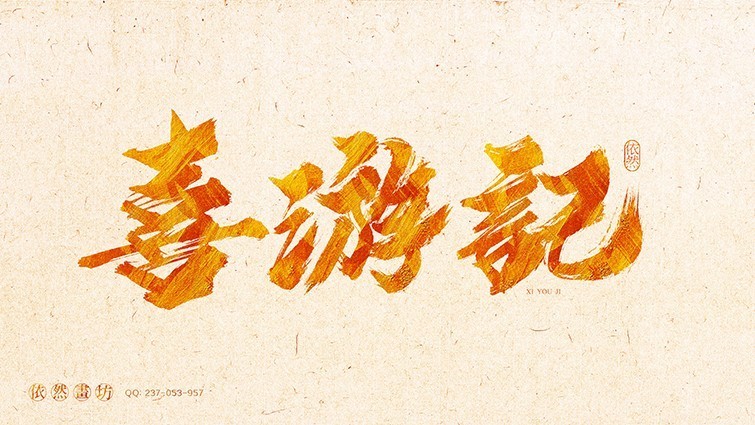 喜游記
依然
XI YOU JI
依然畫坊 QQ: 237-053-957